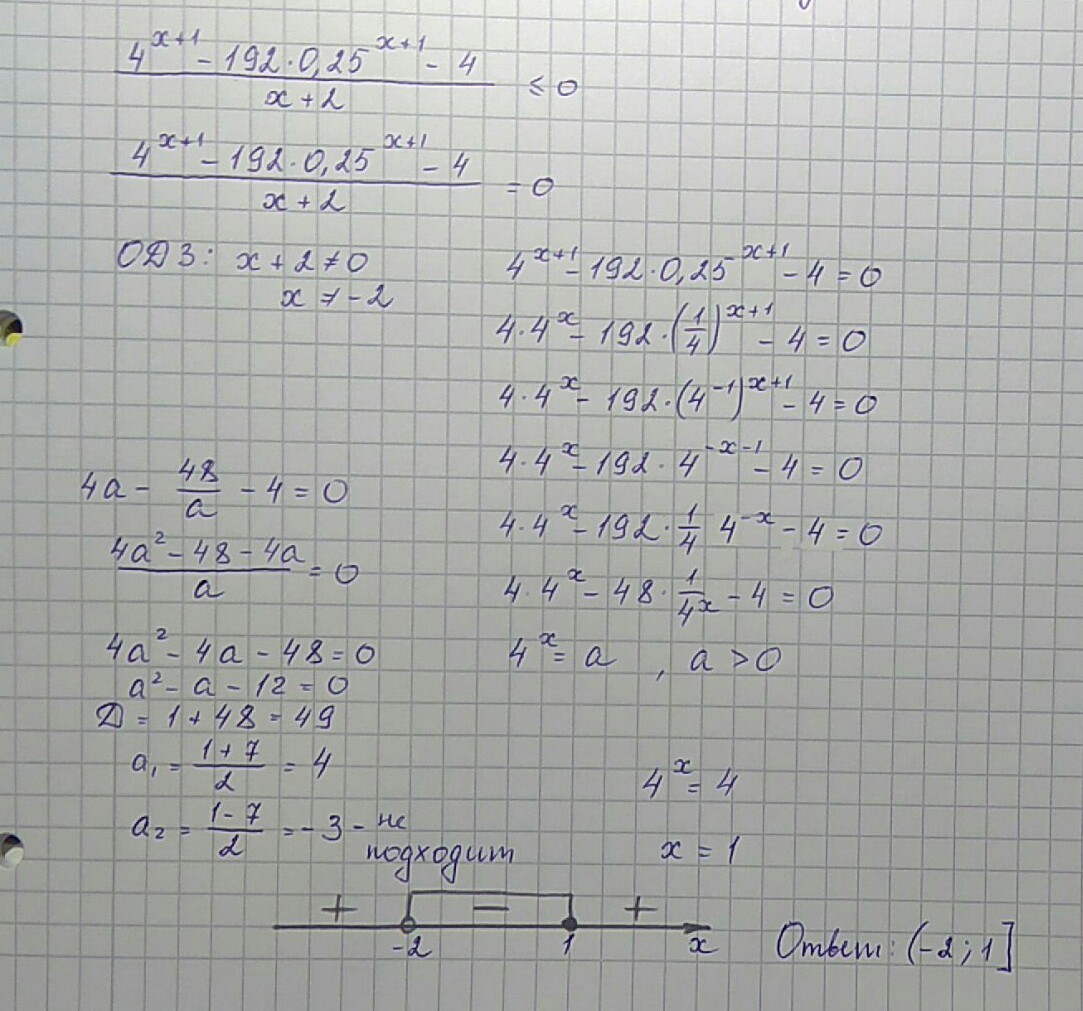 4^(x+1) - 192·0,25^(x+1) - 4
x+2
≤ 0
4^(x+1) - 192·0,25^(x+1) - 4
x+2
= 0
ОДЗ: x+2≠0
x≠-2
4^(x+1) - 192·0,25^(x+1) - 4 = 0
4·4^x - 192·(1/4)^(x+1) - 4 = 0
4·4^x - 192·(4^(-1))^(x+1) - 4 = 0
4·4^x - 192·4^(-x-1) - 4 = 0
4·4^x - 192·1/4 4^(-x) - 4 = 0
4·4^x - 48·1/4^x - 4 = 0
4^x = a , a > 0
4a - 48/a - 4 = 0
(4a² - 48 - 4a)/a = 0
4a² - 4a - 48 = 0
a² - a - 12 = 0
D = 1 + 48 = 49
a₁ = (1+7)/2 = 4
a₂ = (1-7)/2 = -3 - не
подходит
4^x = 4
x = 1
+ − +
-2 1 x
Ответ: (-2; 1]